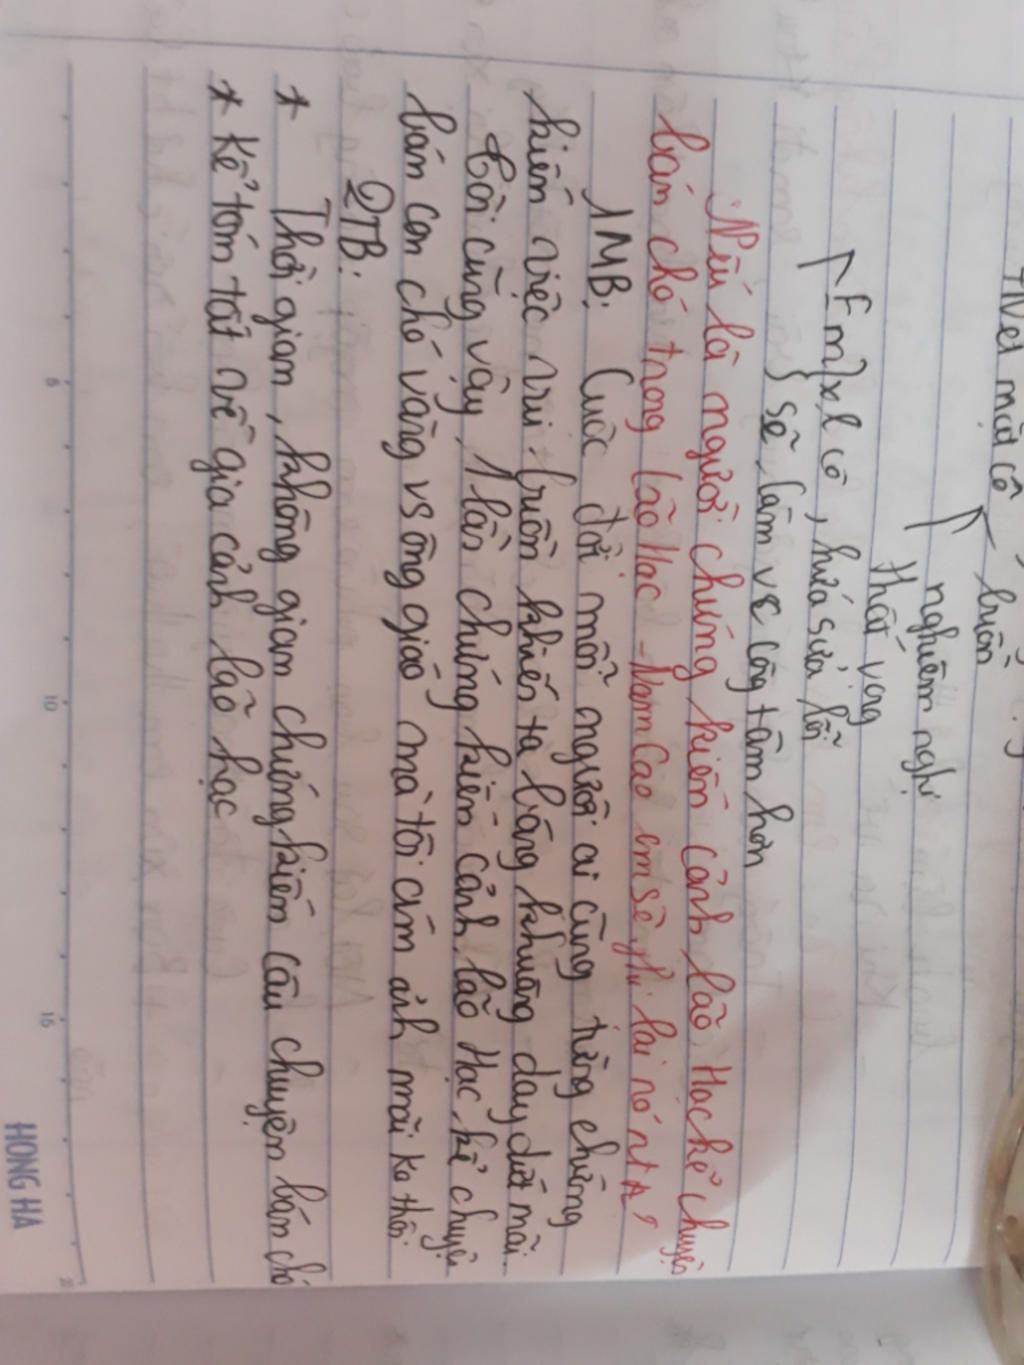 nét mặt cô
buồn
nghiêm nghị
thất vọng
Em xl cô, hứa sửa lỗi
sẽ làm vc công tâm hơn
Nếu là người chứng kiến cảnh lão Hạc kể chuyện
bán chó trong lão Hạc - Nam Cao em sẽ ghi lại nó ntn?
1 MB: Cuộc đời mỗi người ai cũng từng chứng
kiến việc vui buồn khiến ta bâng khuâng day dứt mãi.
Tôi cũng vậy, 1 lần chứng kiến cảnh lão Hạc kể chuyện
bán con chó vàng vs ông giáo mà tôi ám ảnh mãi ko thôi.
2TB:
* Thời gian, không gian chứng kiến câu chuyện bán chó
* Kể tóm tắt về gia cảnh lão hạc
5
10
15
HONG HA